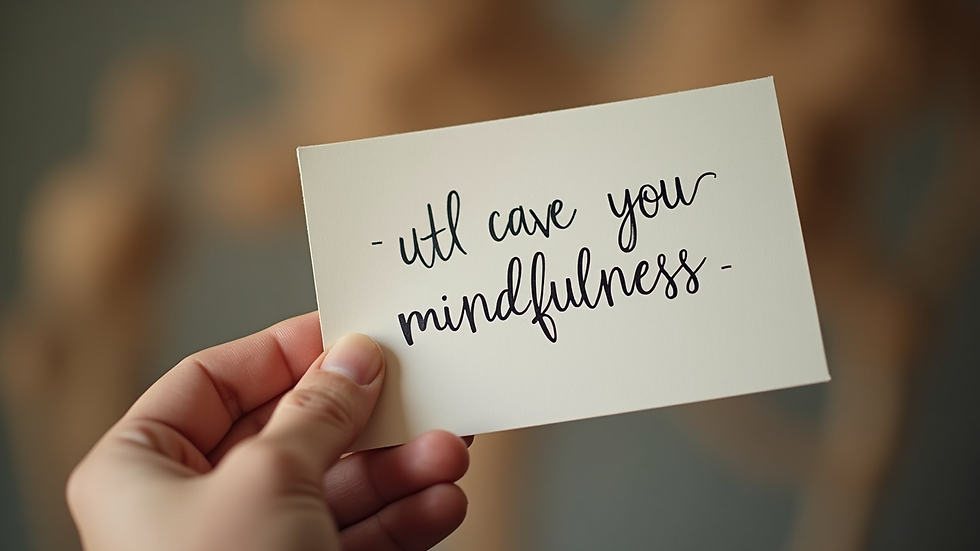 - utl cave you
mindfulness -